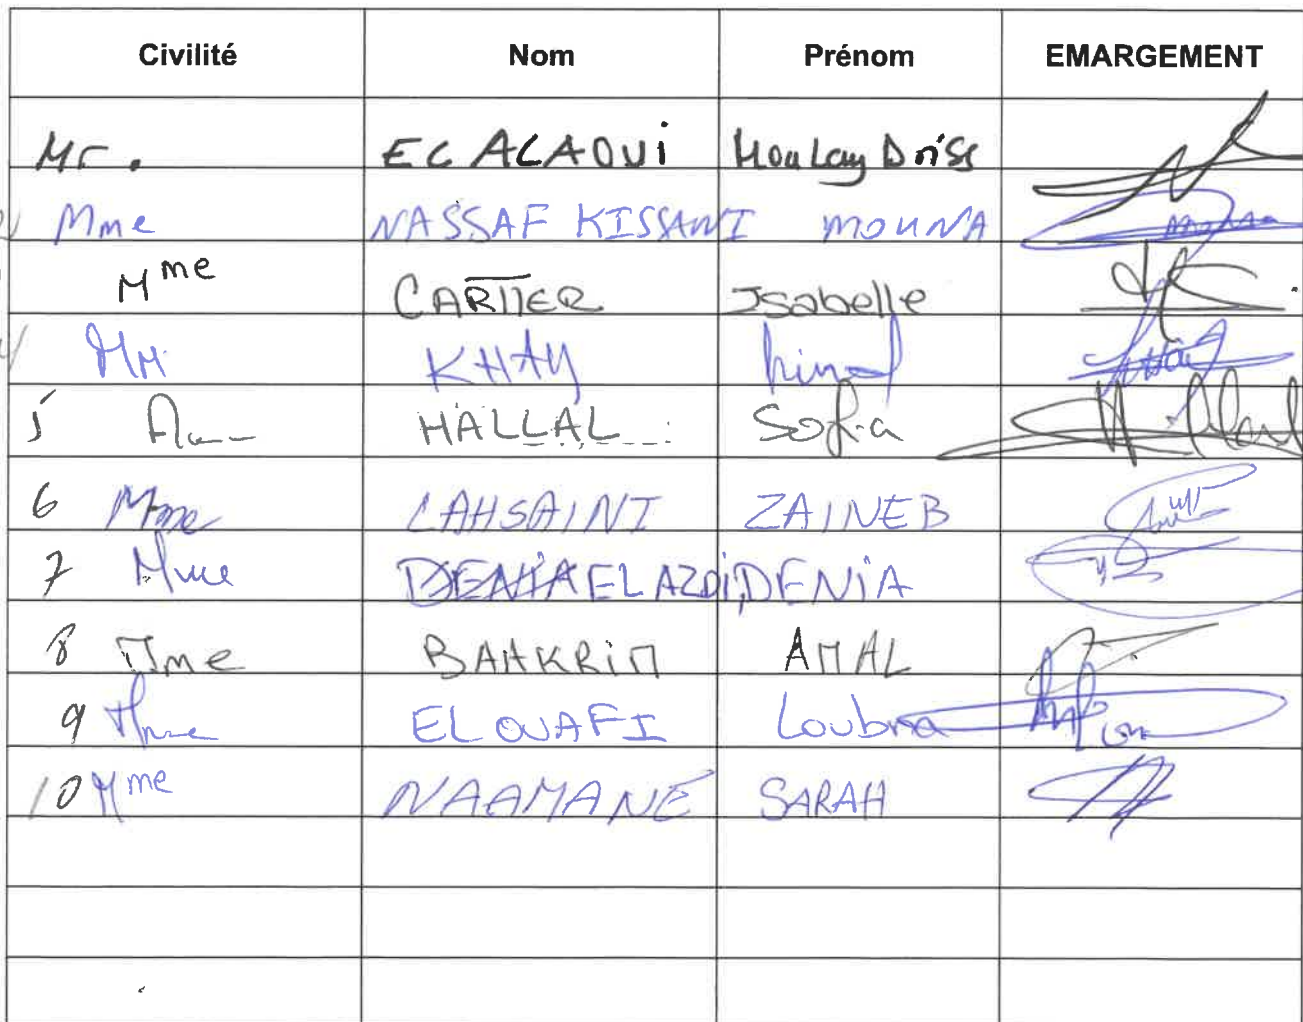 Civilité Nom Prénom EMARGEMENT
Mr. EL ALAOUI Moulay Driss
Mme NASSAF KISSANI MOUNA
Mme CARTIER Isabelle
KHAY hind
5 HALLAL Sofia
6 Mme LAHSAINI ZAINEB
7 Mme DENIA EL AZDI, DENIA
8 Mme BAHKRIM AMAL
9 Mme EL OUAFI Loubna
10 Mme NAAMANE SARAH